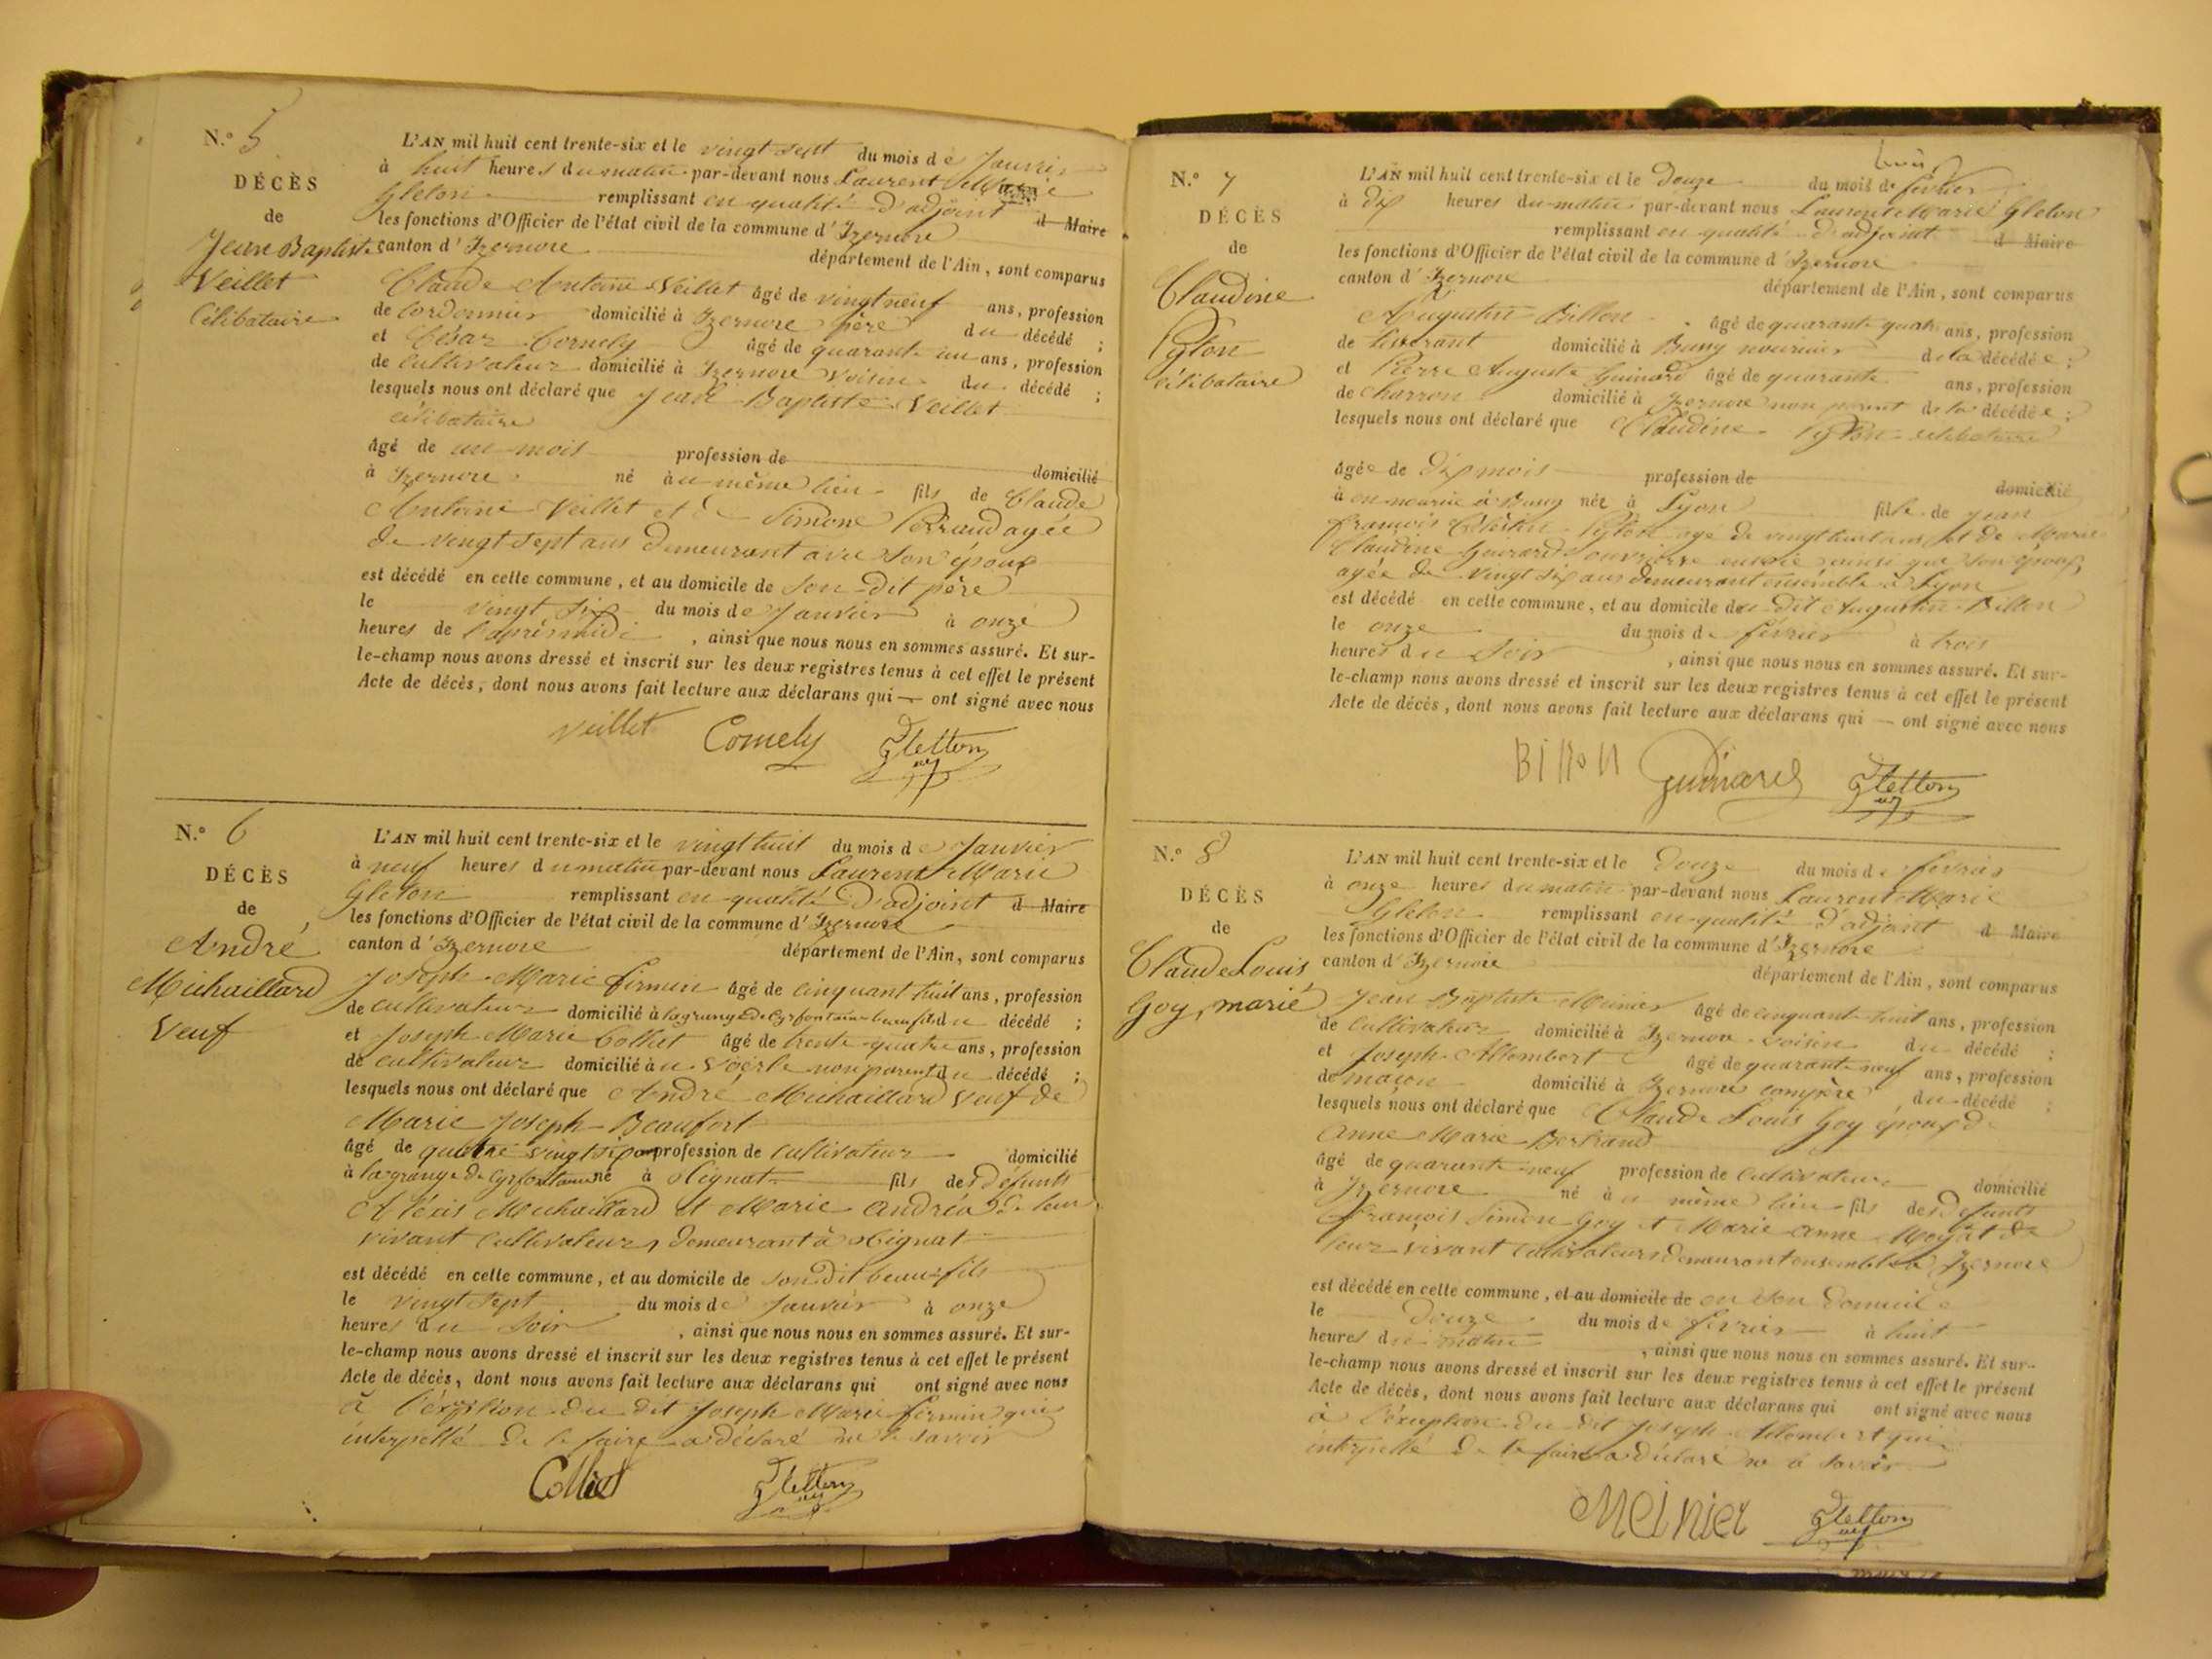 N.° 5
DÉCÈS
de
Jean Baptiste
Veillet
Célibataire
L'AN mil huit cent trente-six et le vingt sept du mois de Janvier
à huit heures du matin par-devant nous Laurent Marie
Gleton remplissant en qualité d'adjoint d Maire
les fonctions d'Officier de l'état civil de la commune d'Izernore
canton d'Izernore département de l'Ain, sont comparus
Claude Antoine Veillet âgé de vingt neuf ans, profession
de Cordonnier domicilié à Izernore père du décédé ;
et César Cornely âgé de quarante un ans, profession
de Cultivateur domicilié à Izernore voisin du décédé ;
lesquels nous ont déclaré que Jean Baptiste Veillet
célibataire
âgé de un mois profession de domicilié
à Izernore né au même lieu fils de Claude
Antoine Veillet et de Simone Perraud agée
de vingt sept ans demeurant avec son époux
est décédé en cette commune, et au domicile de son dit père
le vingt six du mois de Janvier à onze
heures de l'aprèsmidi , ainsi que nous nous en sommes assuré. Et sur-
le-champ nous avons dressé et inscrit sur les deux registres tenus à cet effet le présent
Acte de décès, dont nous avons fait lecture aux déclarans qui — ont signé avec nous
Veillet Cornely Gletton
N.° 6
DÉCÈS
de
André
Michaillard
Veuf
L'AN mil huit cent trente-six et le vingt huit du mois de Janvier
à neuf heures du matin par-devant nous Laurent Marie
Gleton remplissant en qualité d'adjoint d Maire
les fonctions d'Officier de l'état civil de la commune d'Izernore
canton d'Izernore département de l'Ain, sont comparus
Joseph Marie Firmin âgé de cinquant huit ans, profession
de cultivateur domicilié à la grange de Cyrfontaine beaufils du décédé ;
et Joseph Marie Collet âgé de trente quatre ans, profession
de cultivateur domicilié au Voërle non parent du décédé ;
lesquels nous ont déclaré que André Michaillard veuf de
Marie Joseph Beaufort
âgé de quatre vingt six ans profession de cultivateur domicilié
à la grange de Cyrfontaine né à Lignat fils des défunts
Alexis Michaillard et Marie Andréa de leur
vivant cultivateurs demeurant à Lignat
est décédé en cette commune, et au domicile de son dit beau-fils
le vingt sept du mois de Janvier à onze
heures du soir , ainsi que nous nous en sommes assuré. Et sur-
le-champ nous avons dressé et inscrit sur les deux registres tenus à cet effet le présent
Acte de décès, dont nous avons fait lecture aux déclarans qui ont signé avec nous
à l'éxception du dit Joseph Marie Firmin qui
interpellé de le faire a déclaré ne le savoir
Collet Gletton
N.° 7
DÉCÈS
de
Claudine
Pyton
célibataire
L'AN mil huit cent trente-six et le douze du mois de février
à dix heures du matin par-devant nous Laurent Marie Gleton
remplissant en qualité d'adjoint d Maire
les fonctions d'Officier de l'état civil de la commune d'Izernore
canton d'Izernore département de l'Ain, sont comparus
Augustin Billon âgé de quarante quatre ans, profession
de tisserant domicilié à Bussy nouricier de la décédée ;
et Pierre Auguste Guinard âgé de quarante ans, profession
de Charron domicilié à Izernore non parent de la décédée ;
lesquels nous ont déclaré que Claudine Pyton célibataire
âgée de dix mois profession de domicilié
à en nourice à Bussy née à Lyon fille de Jean
françois Pyton agé de vingt huit ans et de Marie
Claudine Guirard ouvrière ensoie ainsi que son époux
agée de vingt six ans demeurant ensemble à Lyon
est décédé en cette commune, et au domicile du dit Augustin Billon
le onze du mois de février à trois
heures du soir , ainsi que nous nous en sommes assuré. Et sur-
le-champ nous avons dressé et inscrit sur les deux registres tenus à cet effet le présent
Acte de décès, dont nous avons fait lecture aux déclarans qui — ont signé avec nous
Billon Guinard Gletton
N.° 8
DÉCÈS
de
Claude Louis
Goy, marié
L'AN mil huit cent trente-six et le douze du mois de février
à onze heures du matin par-devant nous Laurent Marie
Gleton remplissant en qualité d'adjoint d Maire
les fonctions d'Officier de l'état civil de la commune d'Izernore
canton d'Izernore département de l'Ain, sont comparus
Jean Baptiste Munier âgé de cinquante huit ans, profession
de cultivateur domicilié à Izernore voisin du décédé ;
et Joseph Allombert âgé de quarante neuf ans, profession
de maçon domicilié à Izernore compère du décédé ;
lesquels nous ont déclaré que Claude Louis Goy époux de
Anne Marie Bertrand
âgé de quarante neuf profession de cultivateur domicilié
à Izernore né au même lieu fils des défunts
françois Simon Goy et Marie Anne de
leur vivant cultivateurs demeurant ensemble à Izernore
est décédé en cette commune, et au domicile de en son domicile
le douze du mois de février à huit
heures du matin , ainsi que nous nous en sommes assuré. Et sur-
le-champ nous avons dressé et inscrit sur les deux registres tenus à cet effet le présent
Acte de décès, dont nous avons fait lecture aux déclarans qui ont signé avec nous
à l'éxception du dit Joseph Allombert qui
interpellé de le faire a déclaré ne le savoir
Meinier Gletton